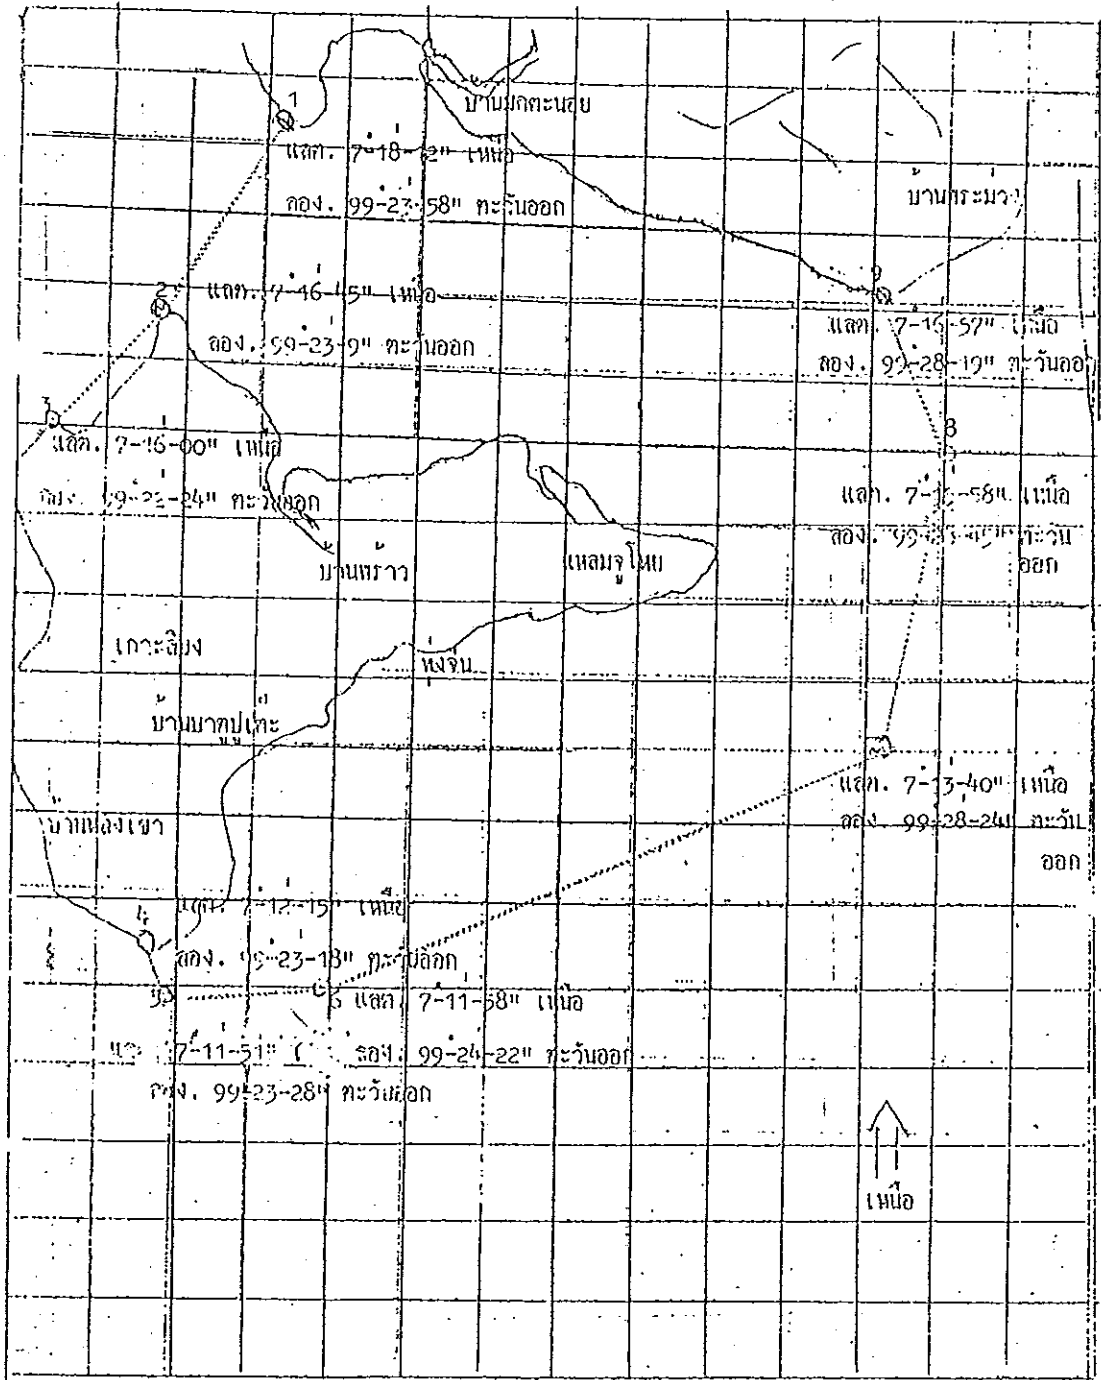 1
บ้านมดตะนอย
แลต. 7-18-12" เหนือ
ลอง. 99-23-58" ตะวันออก
บ้านพระม่วง
2
แลต. 7-16-45" เหนือ
ลอง. 99-23-9" ตะวันออก
9
แลต. 7-16-57" เหนือ
ลอง. 99-28-19" ตะวันออก
3
แลต. 7-16-00" เหนือ
ลอง. 99-22-24" ตะวันออก
8
แลต. 7-15-58" เหนือ
ลอง. ตะวัน
ออก
บ้านพร้าว
แหลมจูโหย
เกาะลิบง
ทุ่งจีน
บ้านบาตูปูเต๊ะ
แลต. 7-13-40" เหนือ
ลอง. 99-28-24" ตะวัน
ออก
บ้านหลังเขา
4
แลต. 7-12-15" เหนือ
ลอง. 99-23-18" ตะวันออก
5
6 แลต. 7-11-58" เหนือ
7-11-51"
ลอง. 99-24-22" ตะวันออก
ลอง. 99-23-28" ตะวันออก
เหนือ